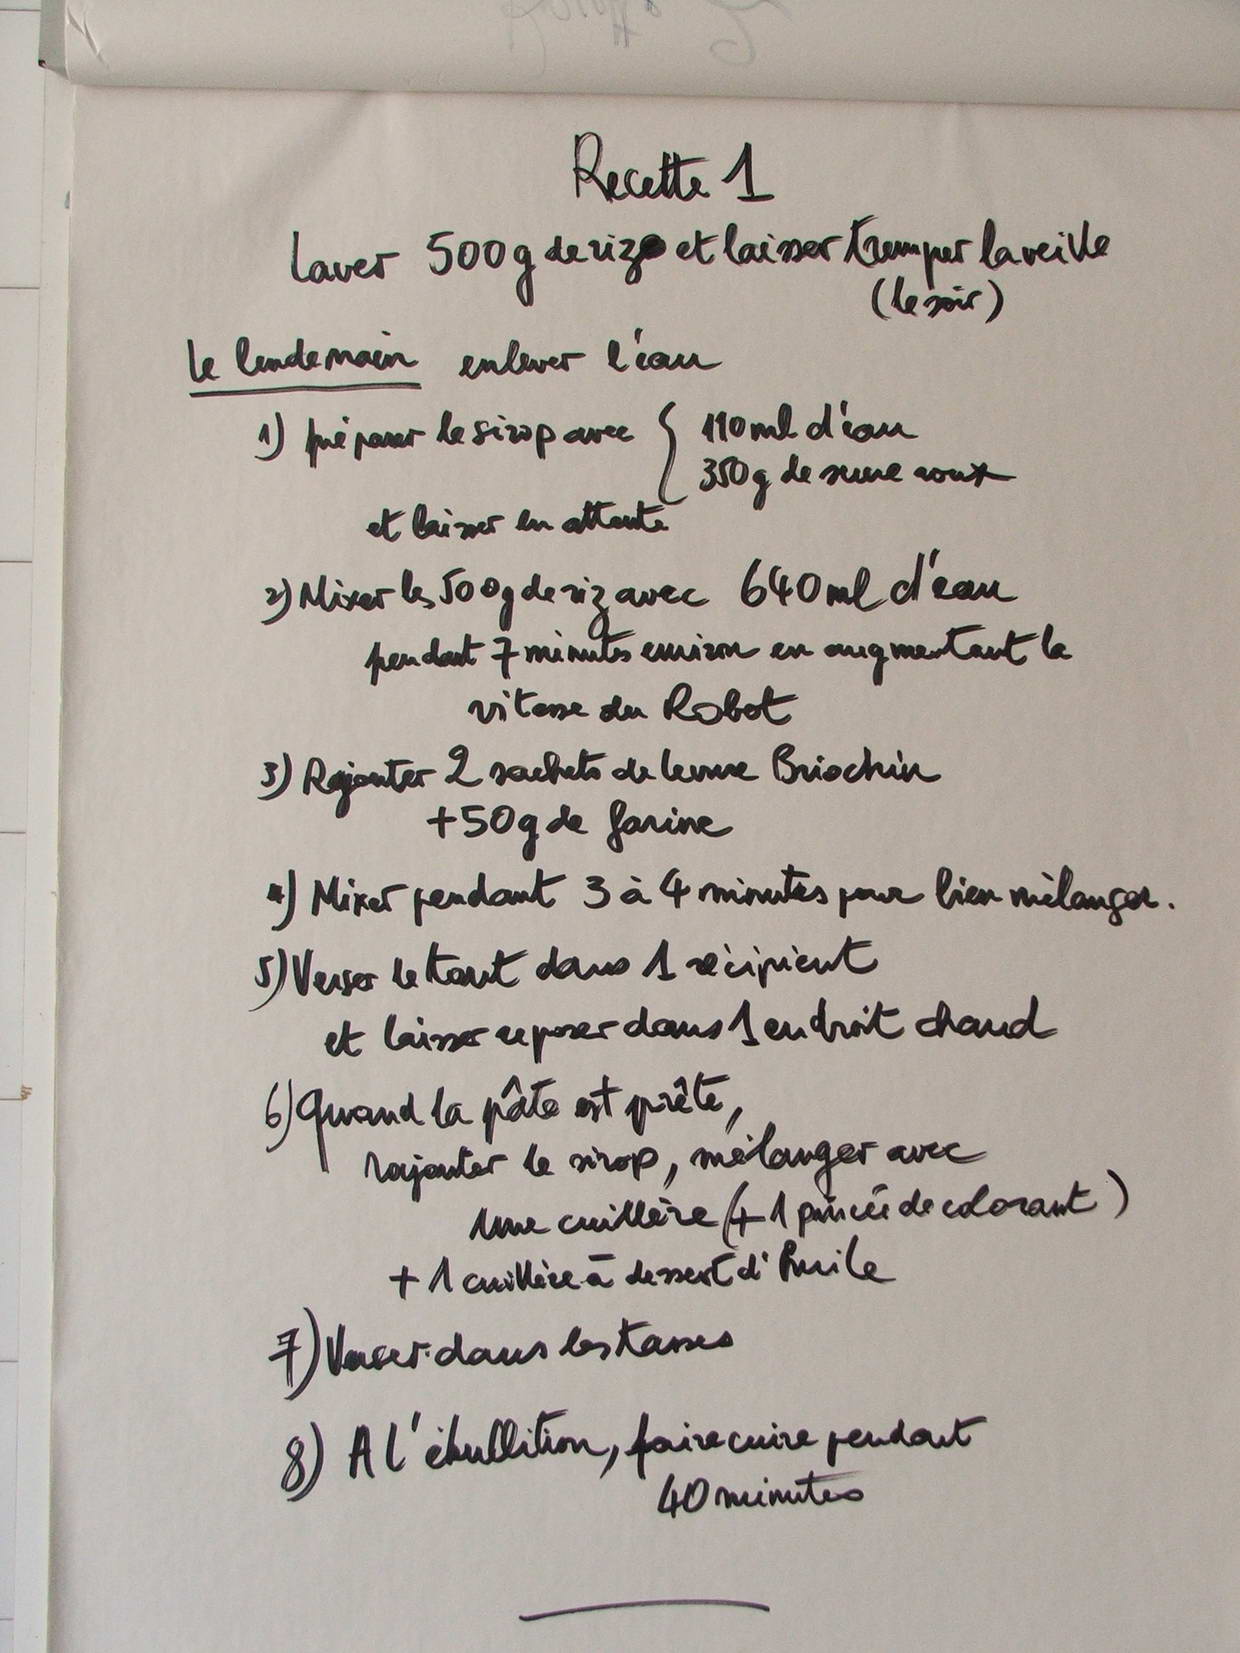 Recette 1
Laver 500g de riz et laisser tremper la veille
(le soir)
Le lendemain enlever l'eau
1) préparer le sirop avec { 110 ml d'eau
350g de sucre roux
et laisser en attente
2) Mixer les 500g de riz avec 640 ml d'eau
pendant 7 minutes environ en augmentant la
vitesse du Robot
3) Rajouter 2 sachets de levure Briochin
+ 50g de farine
4) Mixer pendant 3 à 4 minutes pour bien mélanger.
5) Verser le tout dans 1 récipient
et laisser reposer dans 1 endroit chaud
6) Quand la pâte est prête,
rajouter le sirop, mélanger avec
une cuillère (+ 1 pincée de colorant)
+ 1 cuillère à dessert d'huile
7) Verser dans les tasses
8) A l'ébullition, faire cuire pendant
40 minutes